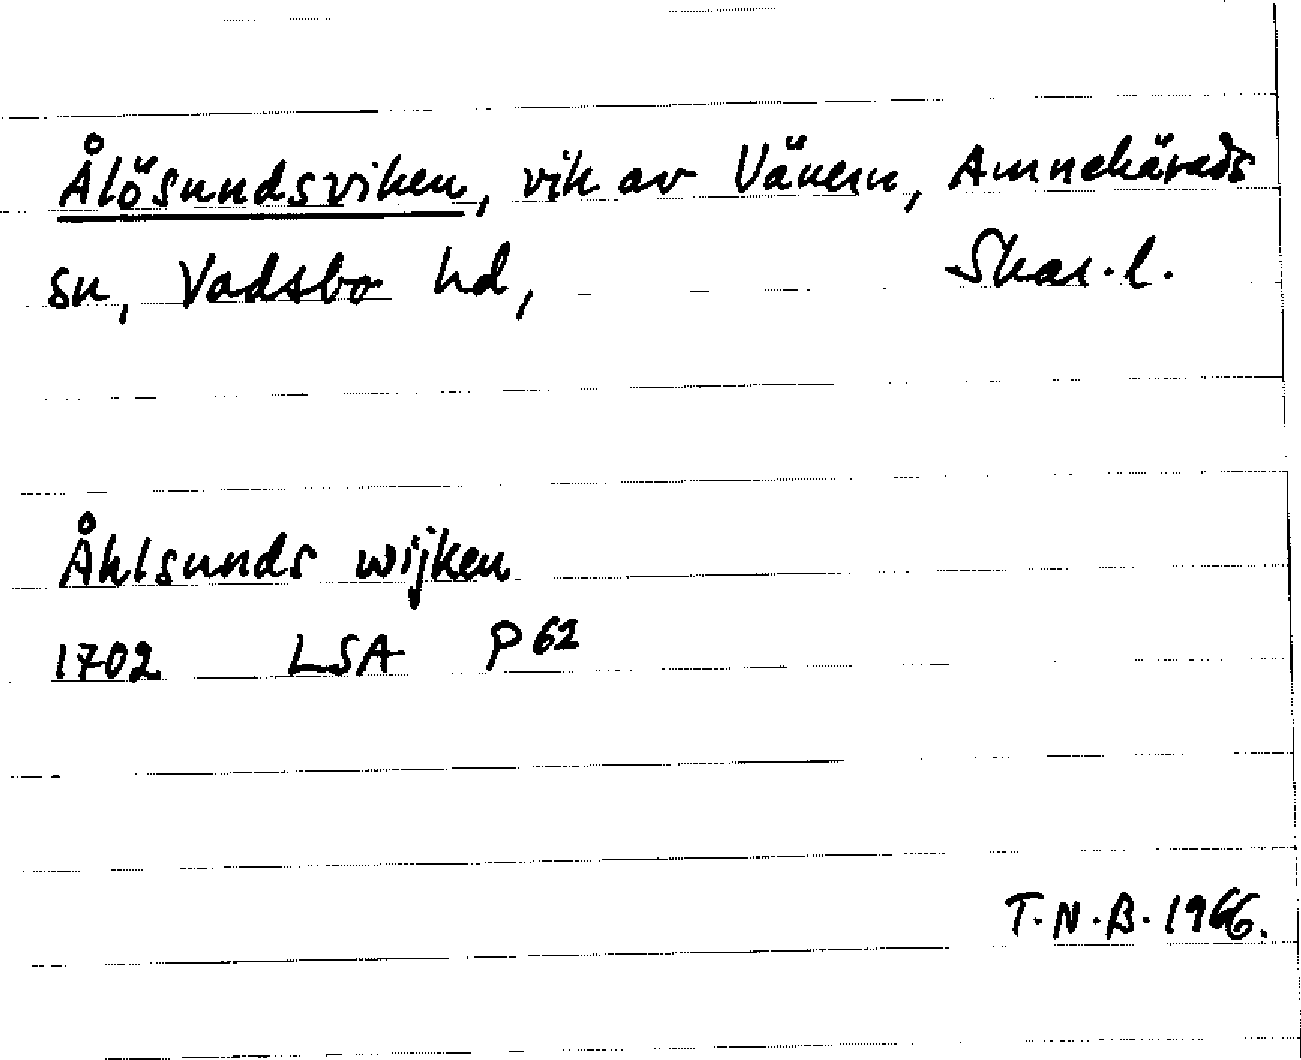 Ålösundsviken, vik av Vänern, Amnehärads
sn, Vadsbo hd, Skar. l.
Åhlsunds wijken
1702 LSA P 62
T.N.B. 1966.